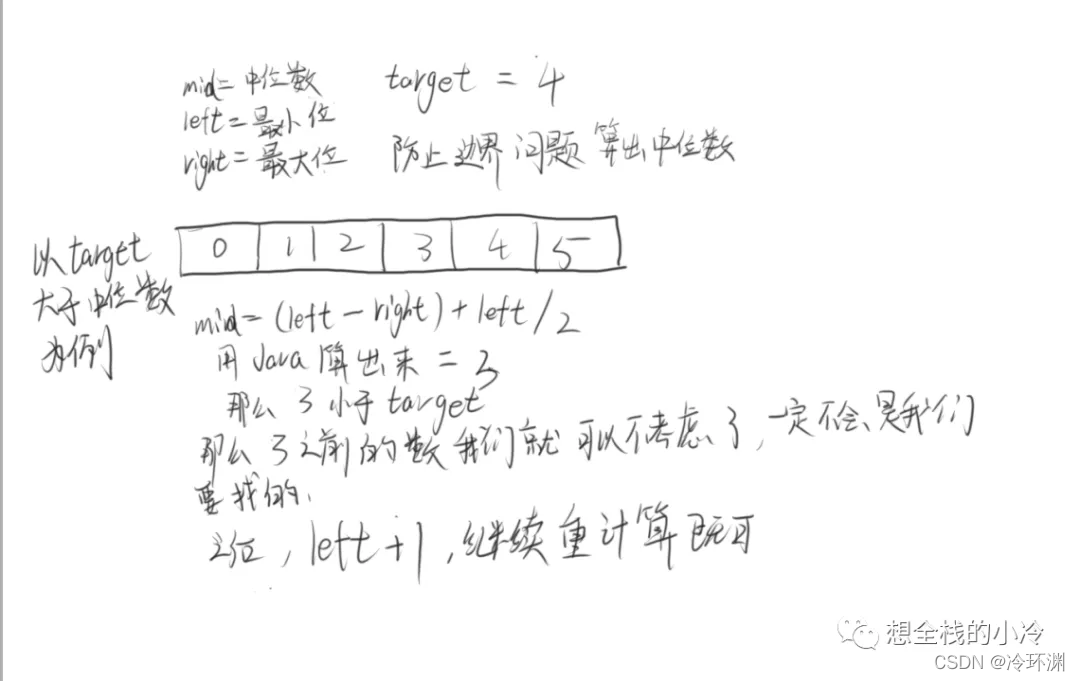 mid=中位数
left=最小位
right=最大位
target = 4
防止边界问题 算出中位数
以target
大于中位数
为例
0 1 2 3 4 5
mid=(left-right)+left/2
用Java算出来=3
那么3小于target
那么3之前的数我们就可以不考虑了,一定不会是我们
要找的.
,left+1,继续重计算既可
想全栈的小冷
CSDN @冷环渊